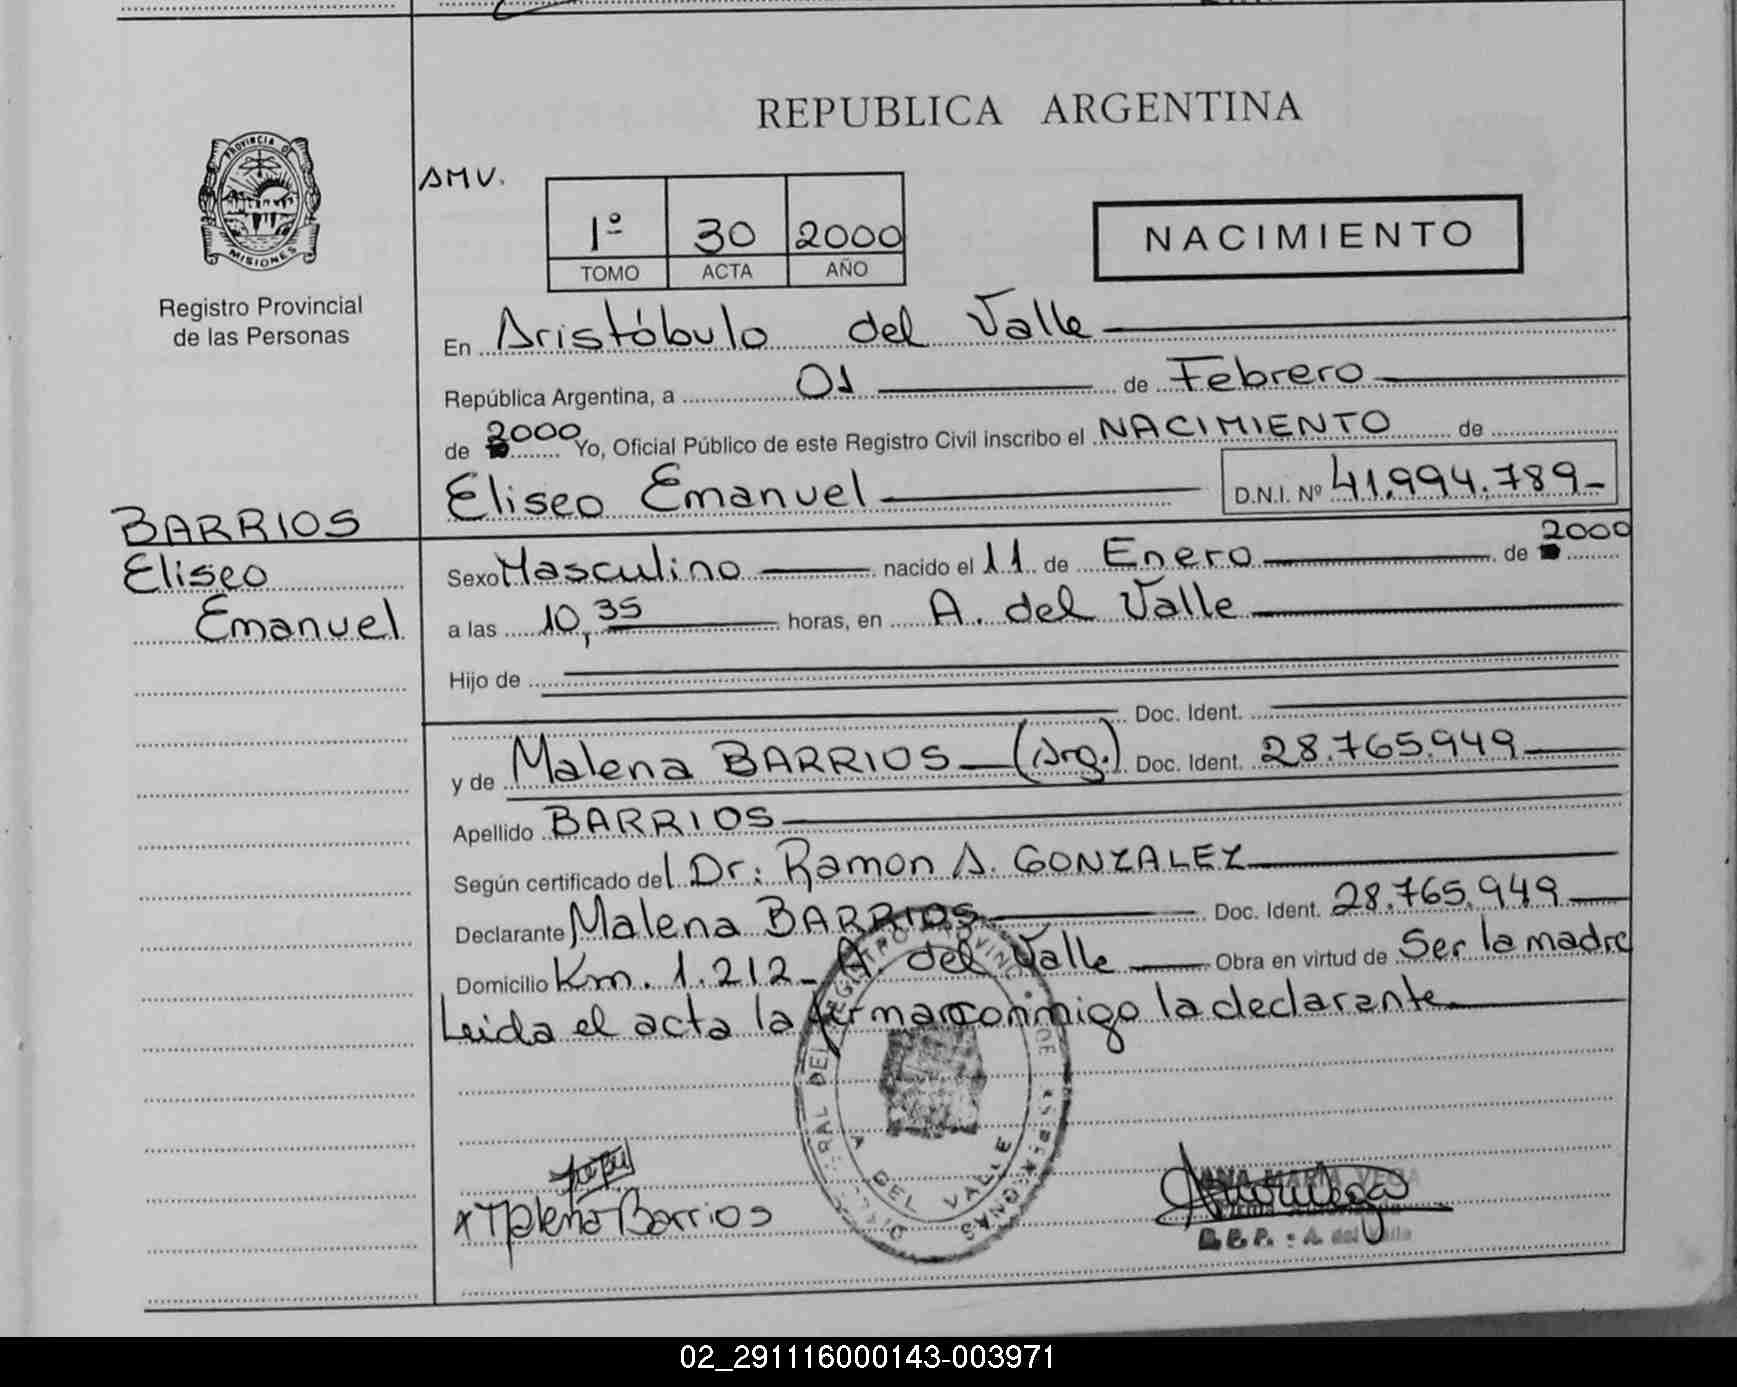 REPUBLICA ARGENTINA
PROVINCIA DE
MISIONES
Registro Provincial
de las Personas
AMV.
1º 30 2000
TOMO ACTA AÑO
NACIMIENTO
En Aristóbulo del Valle
República Argentina, a 01 de Febrero
de 2000 Yo, Oficial Público de este Registro Civil inscribo el NACIMIENTO de
Eliseo Emanuel D.N.I. Nº 41.994.789
BARRIOS
Eliseo
Emanuel
Sexo Masculino nacido el 11 de Enero de 2000
a las 10,35 horas, en A. del Valle
Hijo de
Doc. Ident.
y de Malena BARRIOS (Arg.) Doc. Ident. 28.765.949
Apellido BARRIOS
Según certificado del Dr: Ramon A. GONZALEZ
Declarante Malena BARRIOS Doc. Ident. 28.765.949
Domicilio Km. 1.212 A. del Valle Obra en virtud de Ser la madre
Leida el acta la firma conmigo la declarante
A DEL VALLE
x Malena Barrios
ANA MARIA VEGA
A. del Valle
02_291116000143-003971